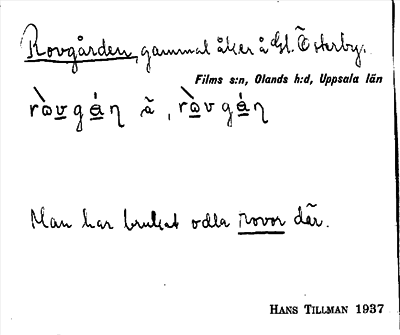 Rovgården, gammal åker å Gl. Österby.
Films s:n, Olands h:d, Uppsala län
Man har brukat odla rovor där.
HANS TILLMAN 1937